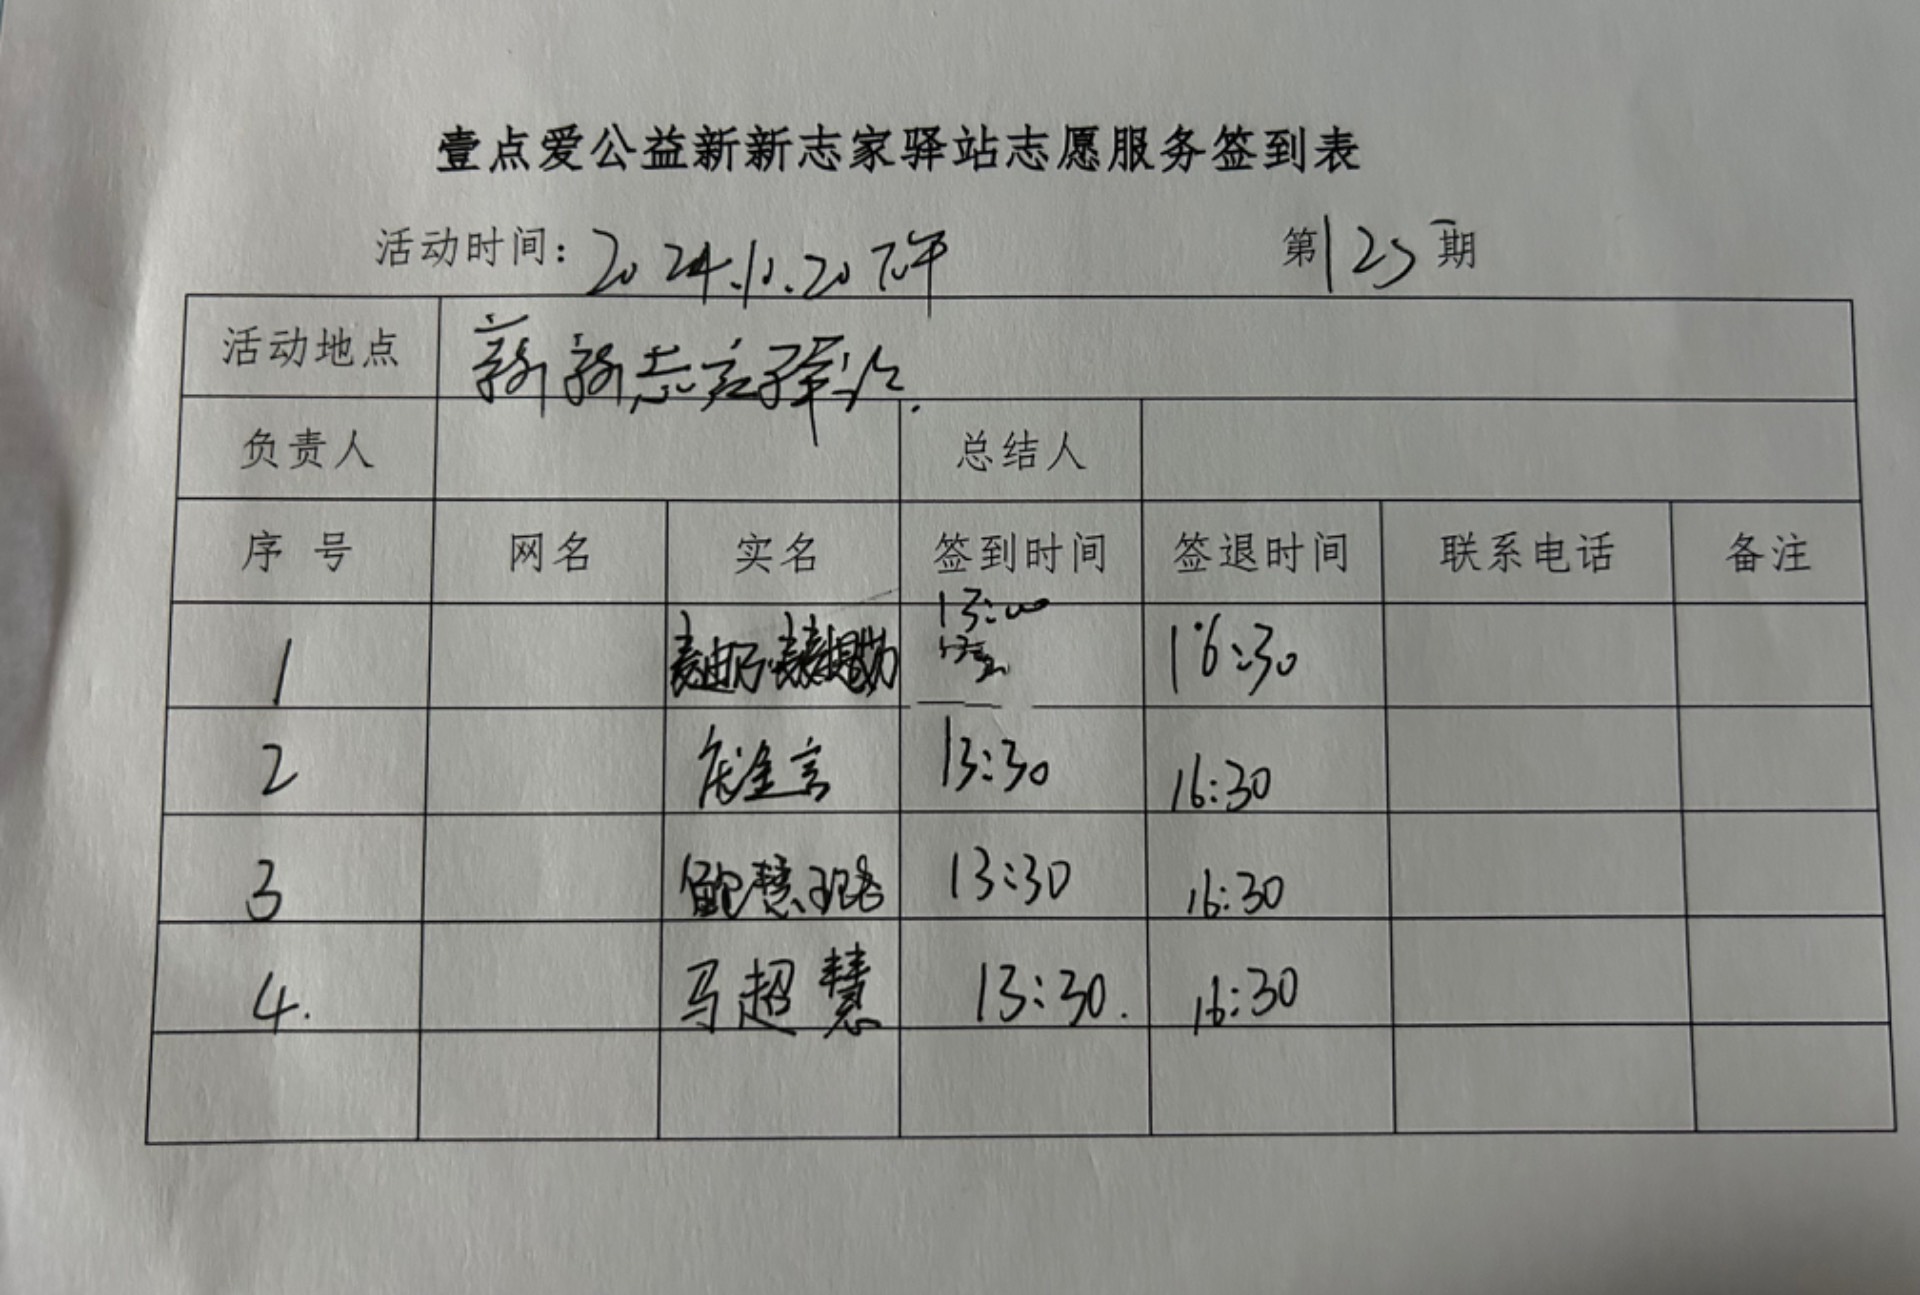 壹点爱公益新新志家驿站志愿服务签到表
活动时间: 2024.10.20下午 第125期
活动地点 新新志家驿站.
负责人 总结人
序号 网名 实名 签到时间 签退时间 联系电话 备注
1 13:00 16:30
2 13:30 16:30
3 鲍慧珺 13:30 16:30
4. 马超慧 13:30. 16:30